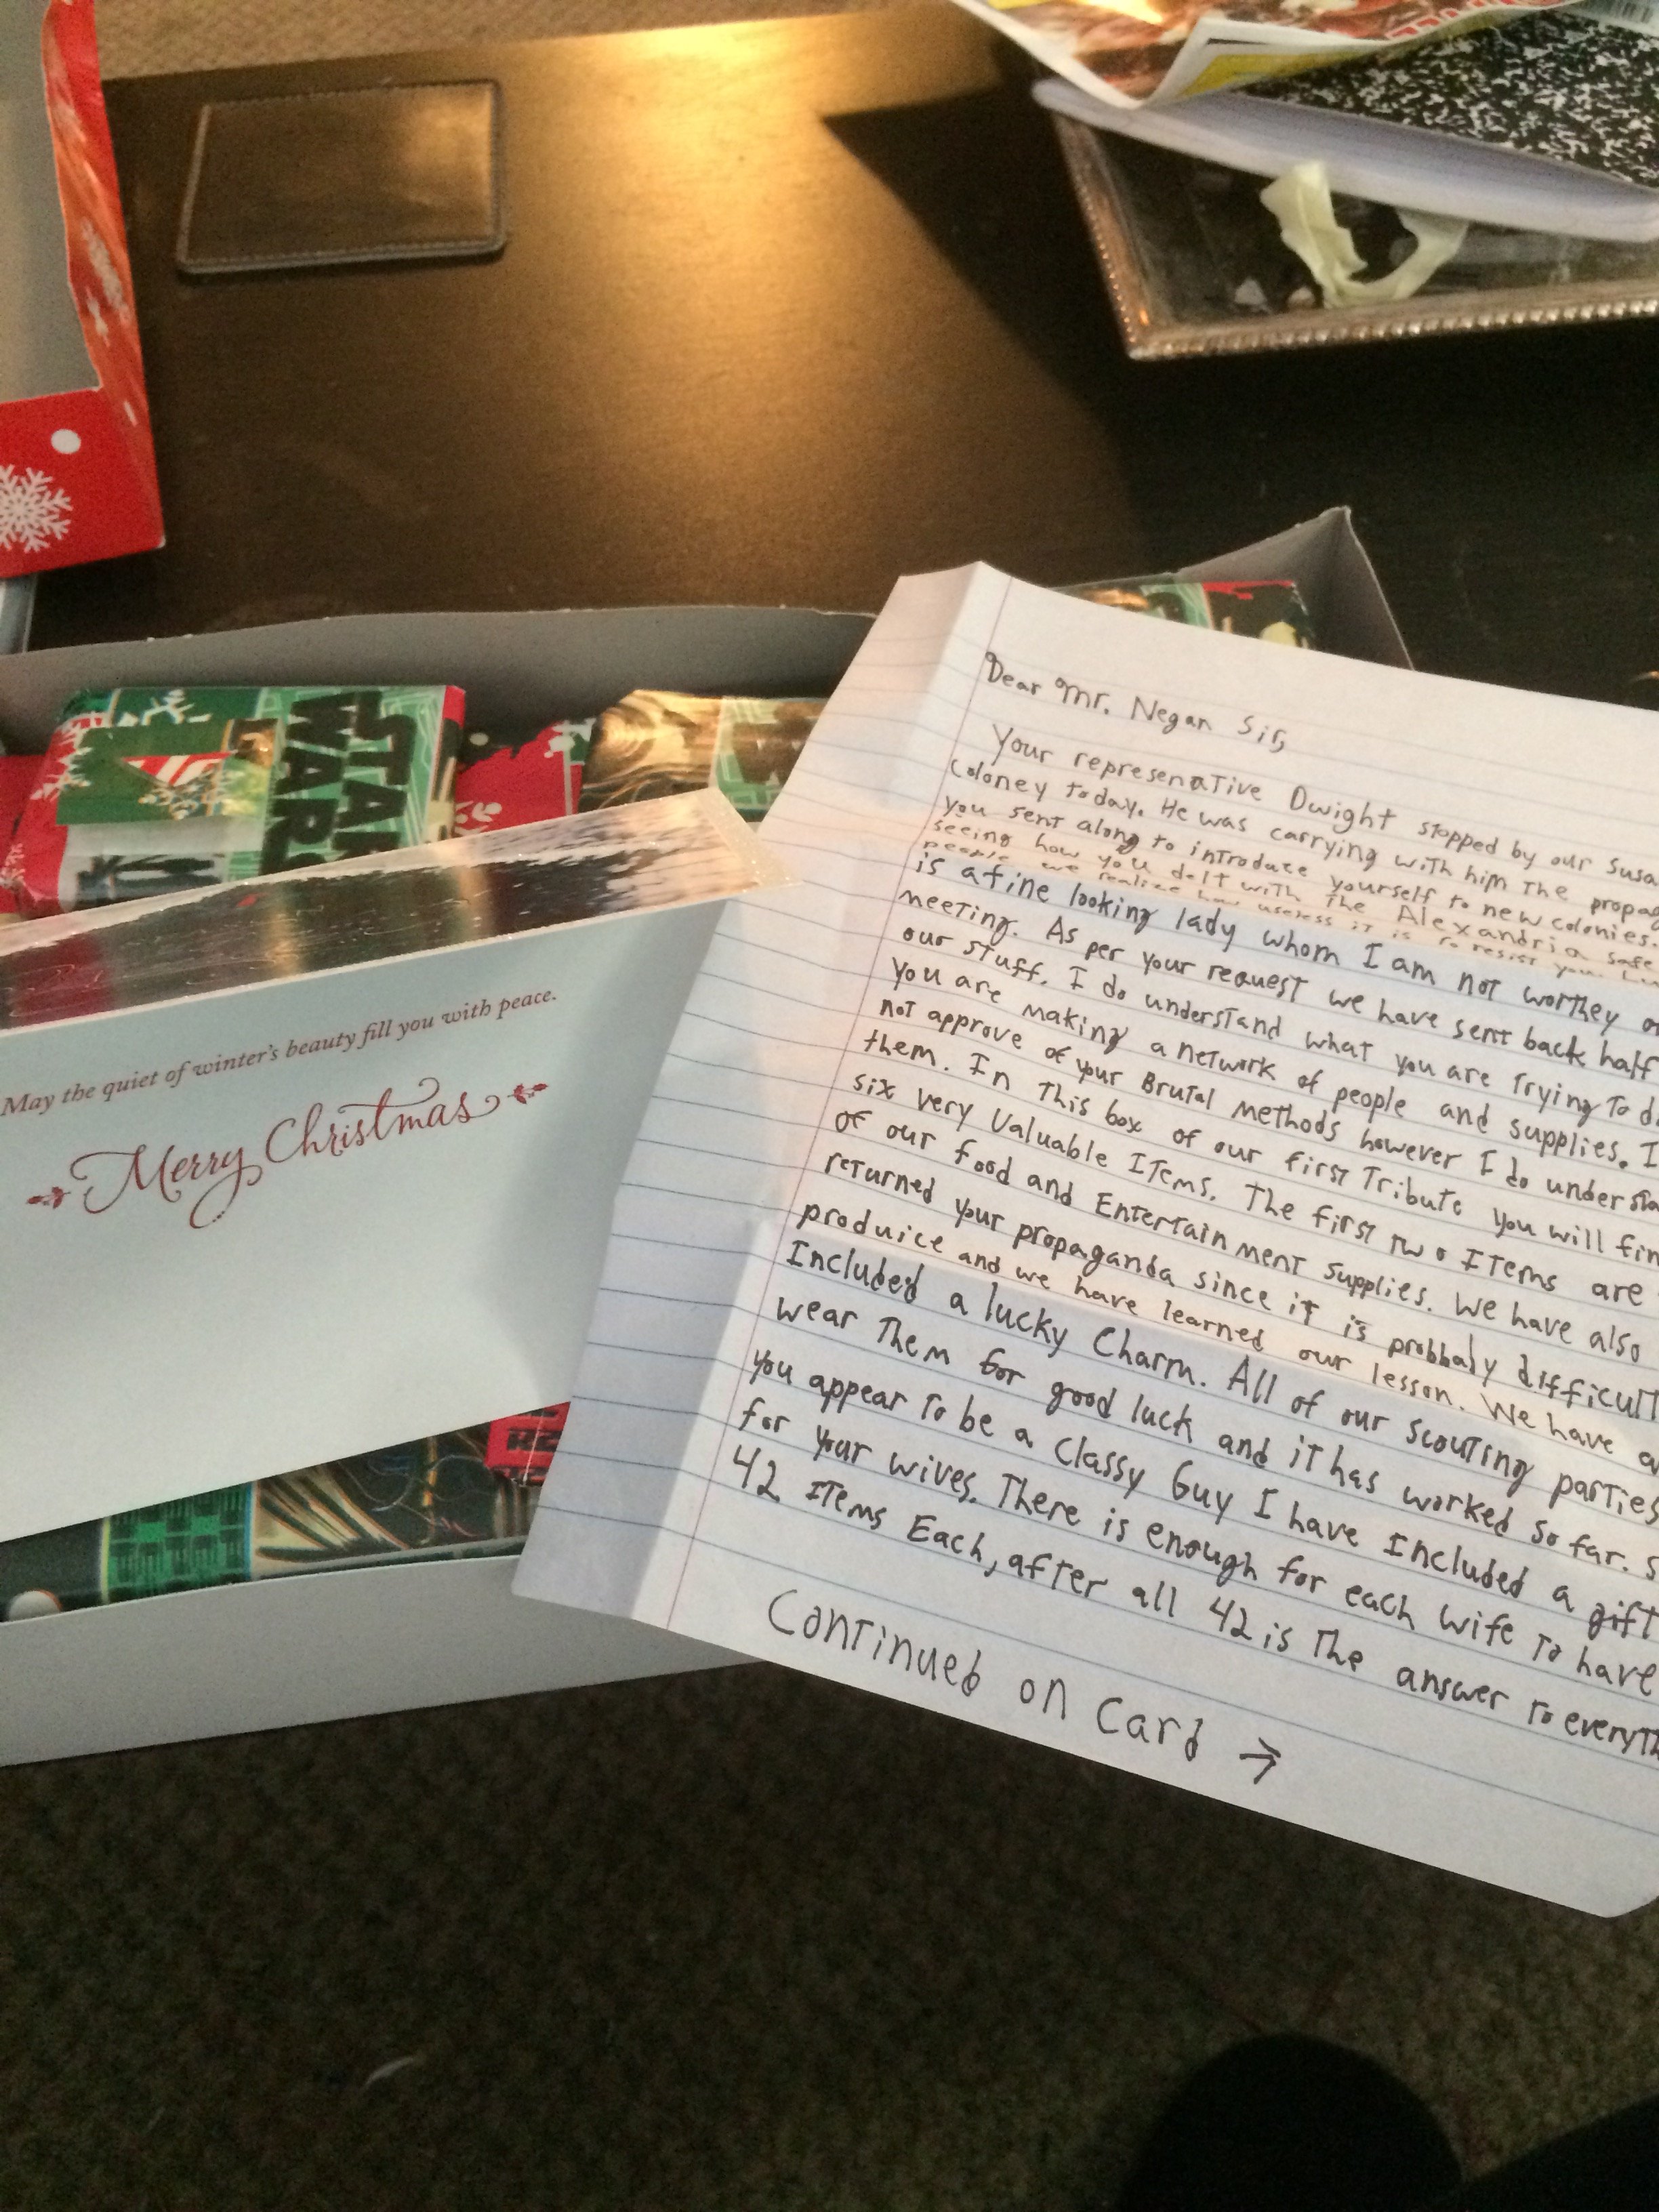 STAR
WARS
Dear Mr. Negan Sir,
Your represenaTive Dwight stopped by our Susa
Coloney today. He was carrying with him The propag
you sent along to introduce yourself to new colonies.
seeing how you delt with The Alexandria safe
people we realize how useless it is To resist you.
is a fine looking lady whom I am not worthey o
meeting. As per your request we have sent back half
our stuff. I do understand what you are Trying To d
You are making a network of people and supplies. I
not approve of your Brutal methods however I do understa
them. In This box of our first Tribute you will fin
six very Valuable ITems. The first Two ITems are
of our food and EnterTainment supplies. We have also
returned your propaganda since it is probbaly difficult
produice and we have learned our lesson. We have a
Included a lucky Charm. All of our scouting parties
wear Them for good luck and it has worked so far. S
you appear To be a Classy Guy I have Included a gift
for your wives. There is enough for each wife To have
42 ITems Each, after all 42 is The answer To everyth
Continued on Card →
May the quiet of winter's beauty fill you with peace.
Merry Christmas
R2